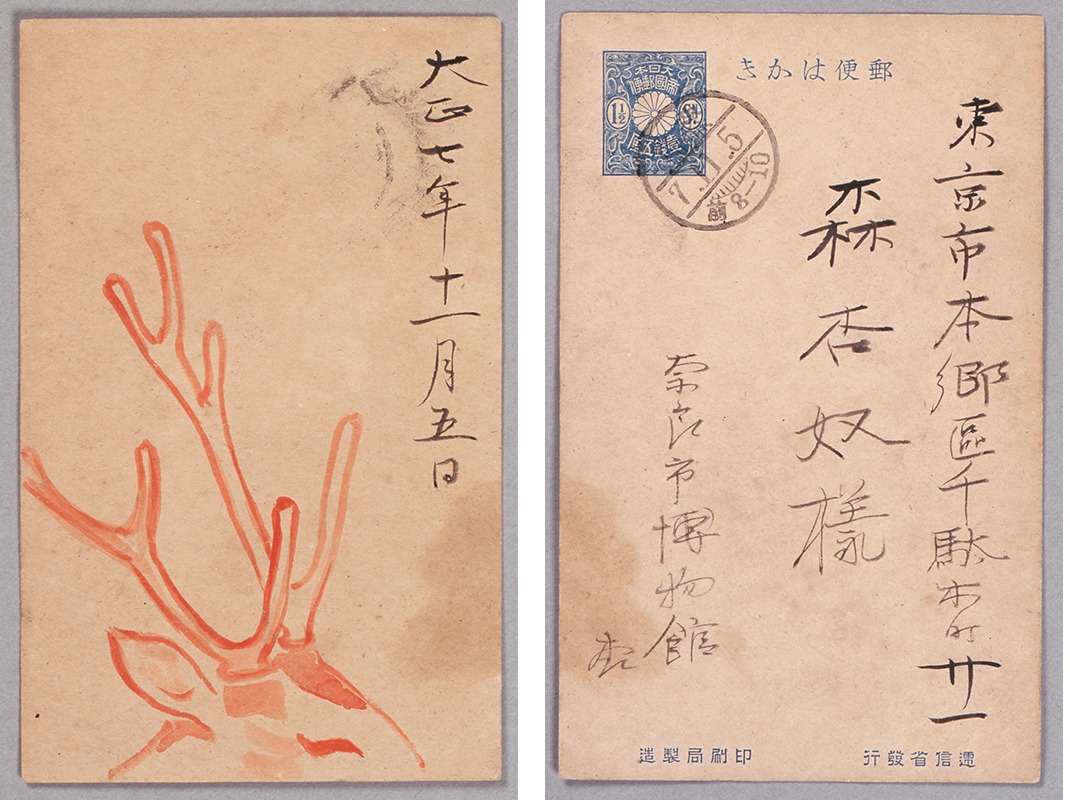 大正七年十一月五日
郵便はかき
大日本
帝國郵便
1½ Sn.
壹錢五厘
7.11.5
前8-10
東京市本郷區千駄木町廿一
森杏奴様
奈良市博物館
遞信省發行
印刷局製造